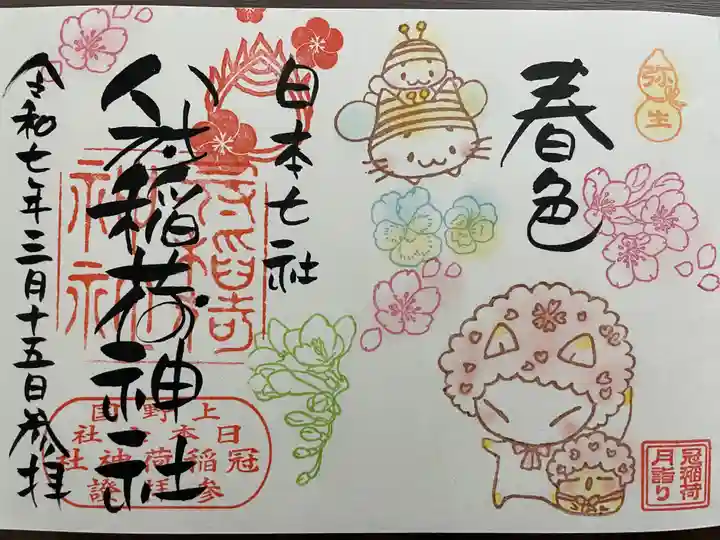 弥生
春色
日本七社
冠稲荷神社
令和七年三月十五日参拝
上野国
日本七社
冠稲荷神社
参拝證
冠稲荷
月詣り